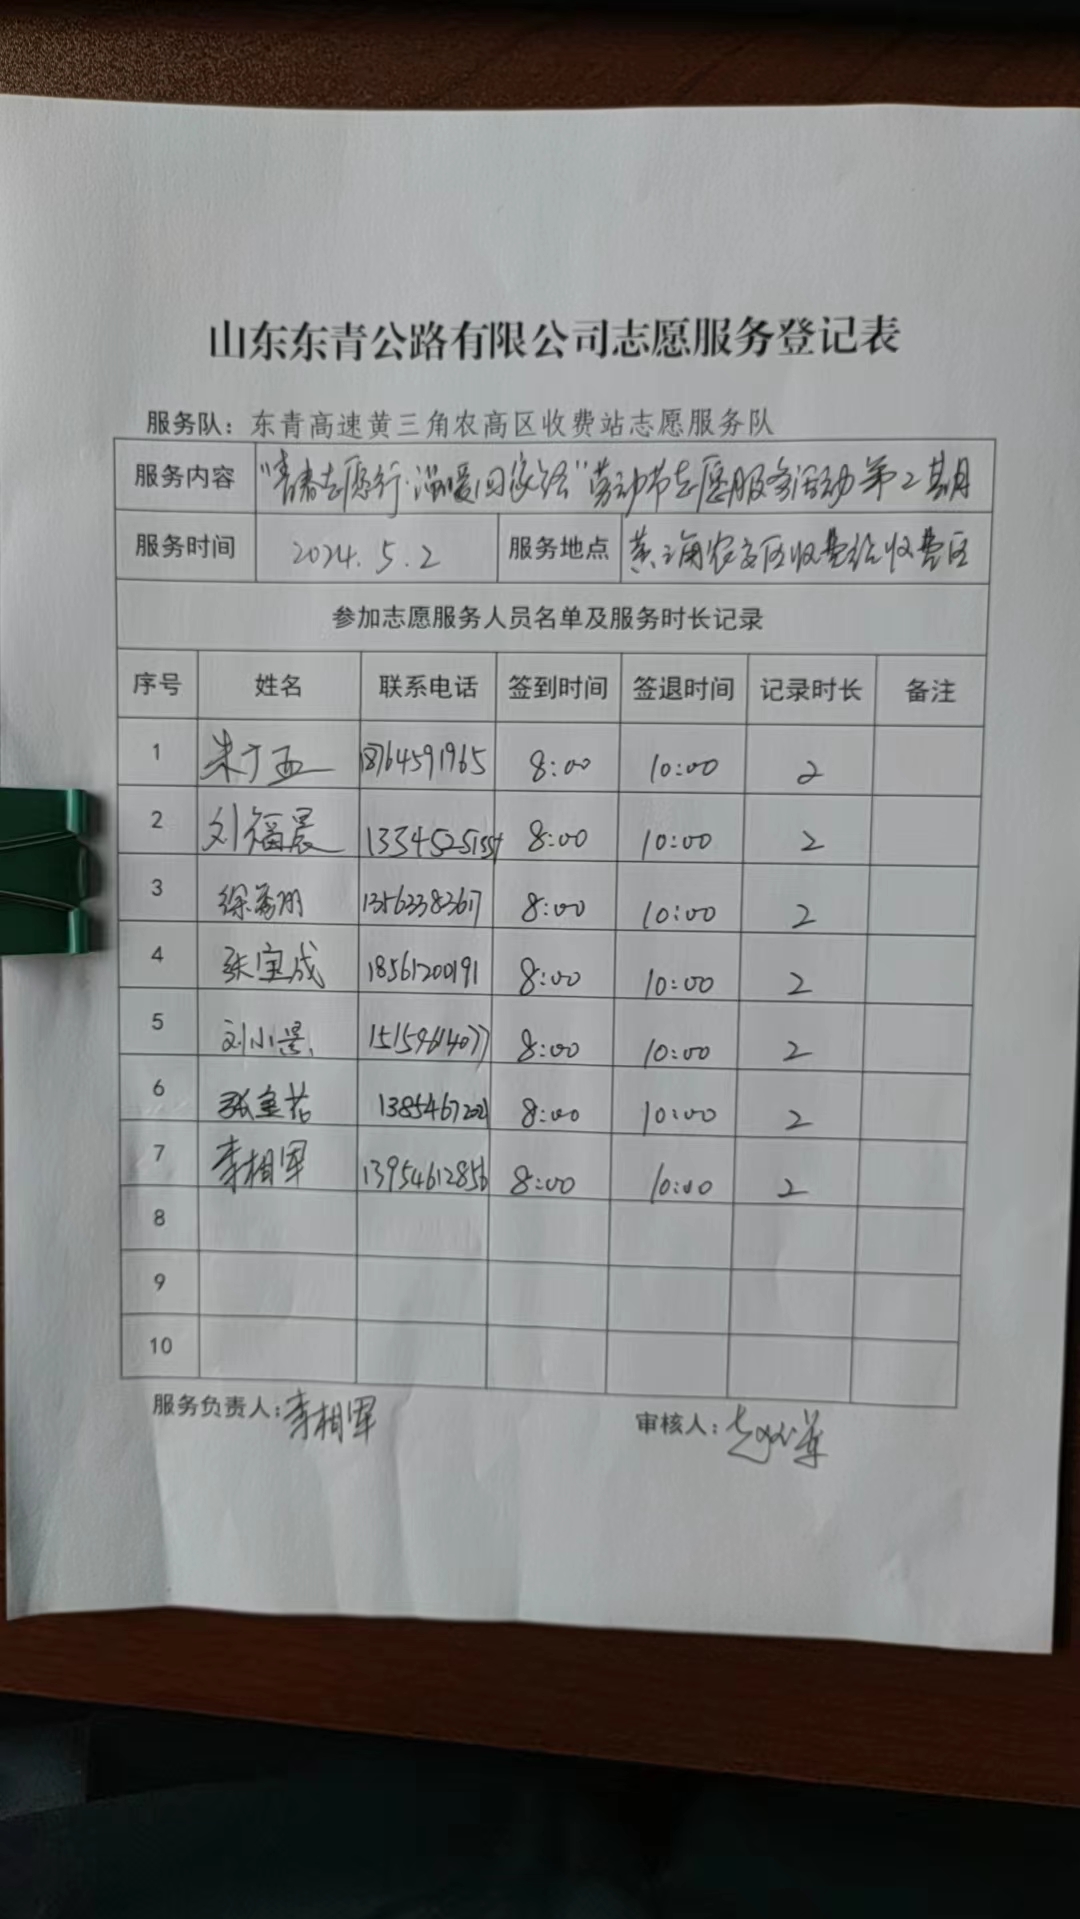 山东东青公路有限公司志愿服务登记表
服务队：东青高速黄三角农高区收费站志愿服务队
服务内容 "青春志愿行·温暖回家路"劳动节志愿服务活动第2期
服务时间 2024.5.2 服务地点 黄三角农高区收费站收费区
参加志愿服务人员名单及服务时长记录
序号 姓名 联系电话 签到时间 签退时间 记录时长 备注
1 18764591965 8:00 10:00 2
2 刘福晨 8:00 10:00 2
3 13562383617 8:00 10:00 2
4 张宝成 18561200191 8:00 10:00 2
5 刘小 15159614077 8:00 10:00 2
6 8:00 10:00 2
7 李相军 13954612856 8:00 10:00 2
8
9
10
服务负责人：李相军 审核人：